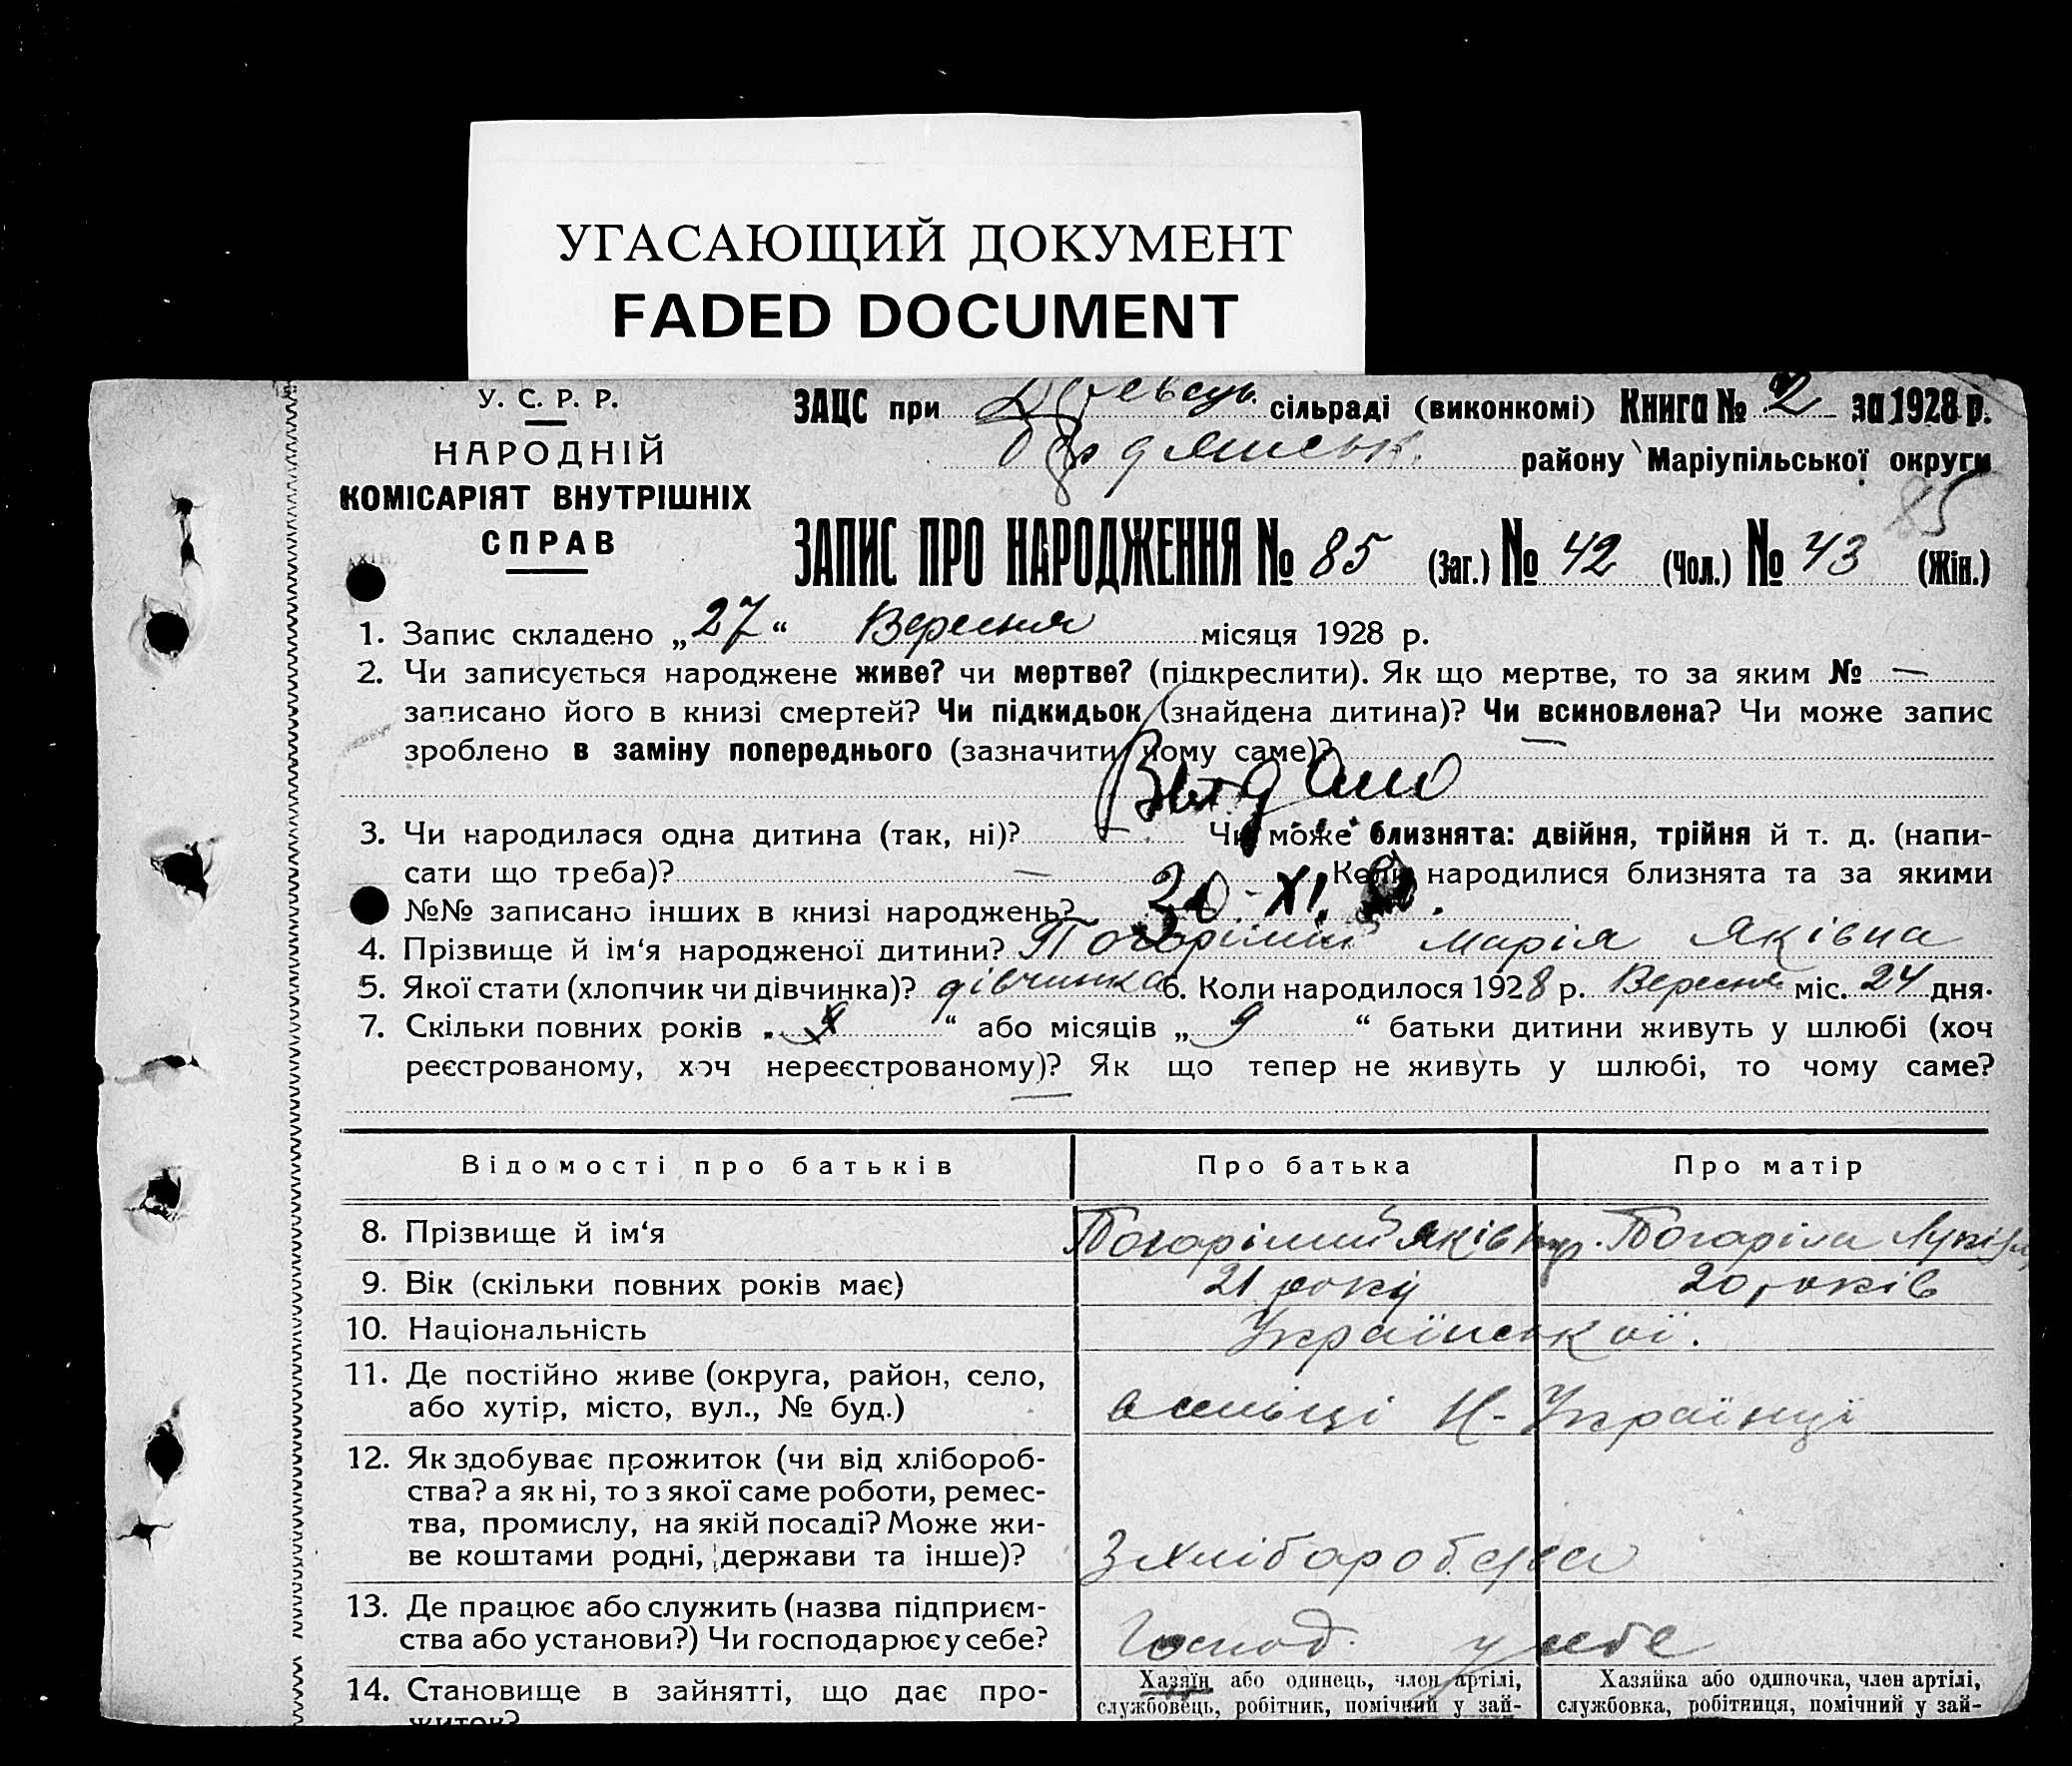 УГАСАЮЩИЙ ДОКУМЕНТ
FADED DOCUMENT
У. С. Р. Р.
НАРОДНІЙ
КОМІСАРІЯТ ВНУТРІШНІХ
СПРАВ
ЗАЦС при сільраді (виконкомі) Книга № 2 за 1928 р.
Бердянськ. району Маріупільської округи
85
ЗАПИС ПРО НАРОДЖЕННЯ № 85 (Заг.) № 42 (Чол.) № 43 (Жін.)
1. Запис складено „27“ Вересня місяця 1928 р.
2. Чи записується народжене живе? чи мертве? (підкреслити). Як що мертве, то за яким № —
записано його в книзі смертей? Чи підкидьок (знайдена дитина)? Чи всиновлена? Чи може запис
зроблено в заміну попереднього (зазначити чому саме)? —
Выдано
3. Чи народилася одна дитина (так, ні)? — Чи може близнята: двійня, трійня й т. д. (напи-
сати що треба)? — Коли народилися близнята та за якими
30-XI.
№№ записано інших в книзі народжень?
4. Прізвище й ім‘я народженої дитини? Марія Яківна
5. Якої стати (хлопчик чи дівчинка)? дівчинка 6. Коли народилося 1928 р. Вересня міс. 24 дня.
7. Скільки повних років „ “ або місяців „9“ батьки дитини живуть у шлюбі (хоч
реєстрованому, хоч нереєстрованому)? Як що тепер не живуть у шлюбі, то чому саме?
—
Відомості про батьків Про батька Про матір
8. Прізвище й ім‘я Яків
9. Вік (скільки повних років має) 21 року 20 років
10. Національність Української.
11. Де постійно живе (округа, район, село,
або хутір, місто, вул., № буд.)
12. Як здобуває прожиток (чи від хлібороб-
ства? а як ні, то з якої саме роботи, ремес-
тва, промислу, на якій посаді? Може жи-
ве коштами родні, держави та інше)?
13. Де працює або служить (назва підприєм-
ства або установи?) Чи господарює у себе? Господ. у себе
14. Становище в зайнятті, що дає про-
житок?
Хазяїн або одинець, член артілі,
службовець, робітник, помічний у зай-
Хазяйка або одиночка, член артілі,
службовка, робітниця, помічний у зай-